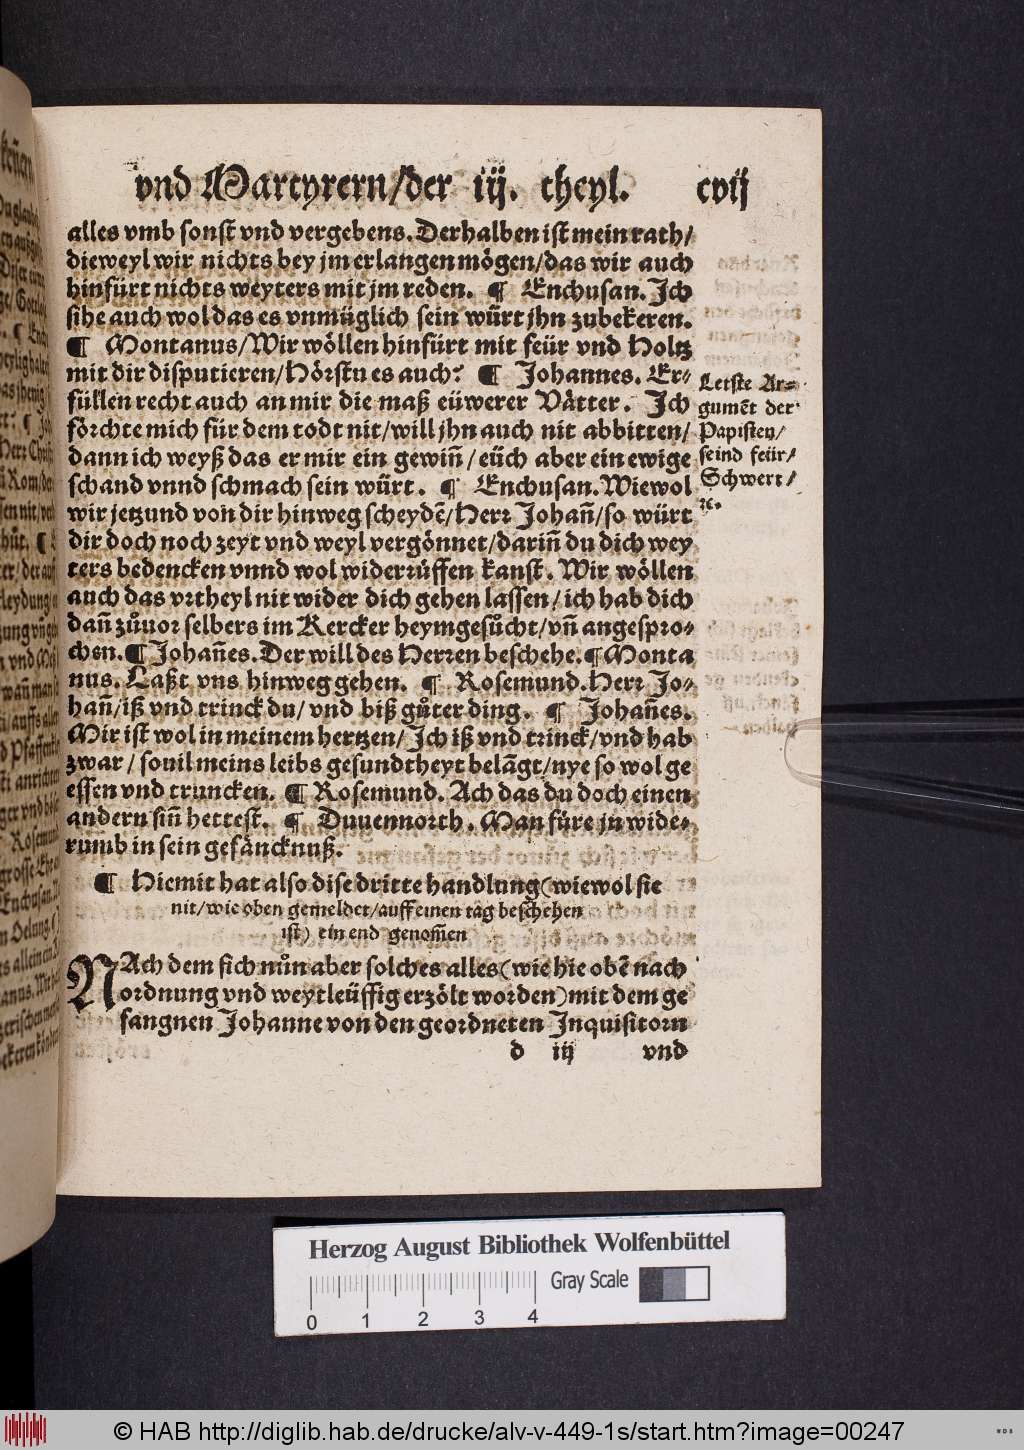 vnd Martyrern/der iij. theyl. cvij
alles vmb sonst vnd vergebens. Derhalben ist mein rath/
dieweyl wir nichts bey jm erlangen mögen/das wir auch
hinfürt nichts weyters mit jm reden. ¶ Enchusan. Ich
sihe auch wol das es vnmüglich sein würt jhn zubekeren.
¶ Montanus/Wir wöllen hinfürt mit feür vnd Holtz
mit dir disputieren/Hörstu es auch? ¶ Johannes. Er⸗
füllen recht auch an mir die maß eüwerer Vätter. Ich
förchte mich für dem todt nit/will jhn auch nit abbitten/
dann ich weyß das er mir ein gewiñ/eüch aber ein ewige
schand vnnd schmach sein würt. ¶ Enchusan. Wiewol
wir jetzund von dir hinweg scheydē/Herr Johañ/so würt
dir doch noch zeyt vnd weyl vergönnet/dariñ du dich wey
ters bedencken vnnd wol widerrüffen kanst. Wir wöllen
auch das vrtheyl nit wider dich gehen lassen/ich hab dich
dañ zůuor selbers im Kercker heymgesůcht/vñ angespro⸗
chen. ¶ Johañes. Der will des Herren beschehe. ¶ Monta
nus. Laßt vns hinweg gehen. ¶ Rosemund. Herr Jo⸗
hañ/iß vnd trinck du/vnd biß gůter ding. ¶ Johañes.
Mir ist wol in meinem hertzen/Ich iß vnd trinck/vnd hab
zwar/souil meins leibs gesundtheyt belāgt/nye so wol ge
essen vnd truncken. ¶ Rosemund. Ach das du doch einen
andern siñ hettest. ¶ Duuennorth. Man füre jn wide⸗
rumb in sein gefäncknuß.
Letste Ar⸗
gumēt der
Papisten/
seind feür/
Schwert/
⁊c.
¶ Hiemit hat also dise dritte handlung (wiewol sie
nit/wie oben gemeldet/auff einen tag beschehen
ist) ein end genom̄en
NAch dem sich nůn aber solches alles (wie hie obē nach
ordnung vnd weytleüffig erzölt worden) mit dem ge
fangnen Johanne von den geordneten Inquisitorn
d iij vnd
Herzog August Bibliothek Wolfenbüttel
Gray Scale
0 1 2 3 4
© HAB http://diglib.hab.de/drucke/alv-v-449-1s/start.htm?image=00247